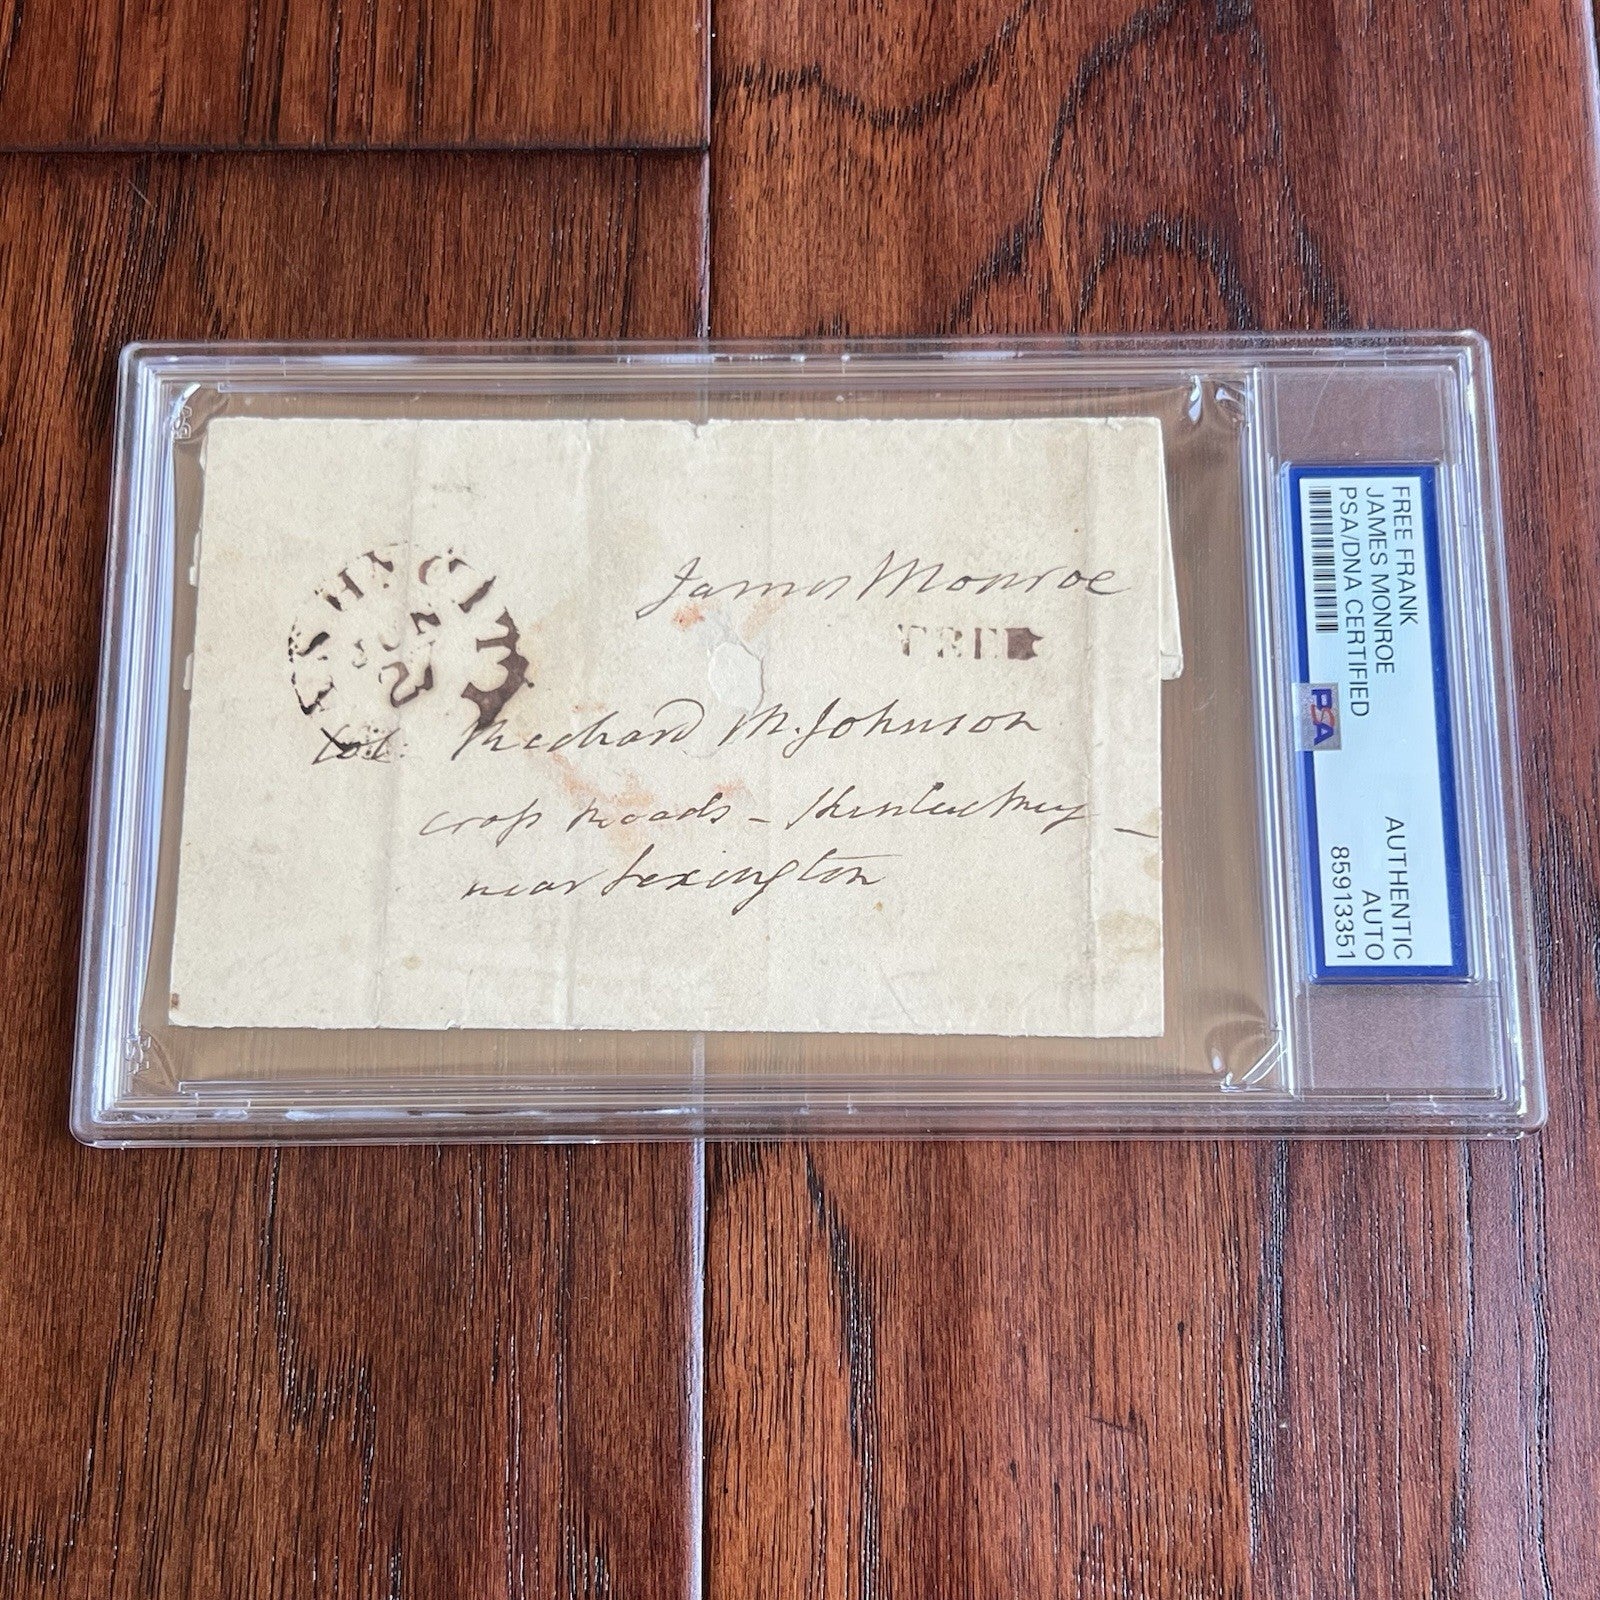 James Monroe
FREE
Col: Richard M. Johnson
cross Roads - Kentuckey -
near Lexington
FREE FRANK
JAMES MONROE
PSA/DNA CERTIFIED
PSA
AUTHENTIC
AUTO
85913351